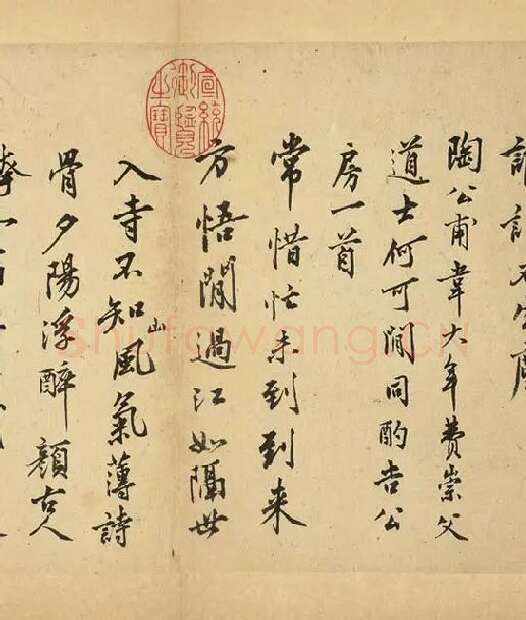 陶公甫韋大年費崇父
道士何可閒同酌告公
房一首
常惜忙未到到来
方悟閒過江如隔世
入寺不知山風氣薄詩
骨夕陽浮醉顏古人
宣統御覽之寶
Shufawang.CN